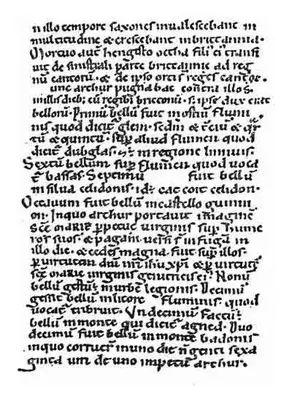 n illo tempore saxones inualescebant in
multitudine & crescebant in brittannia.
Mortuo aut hengisto octha fili ei transi
uit de sinistrali parte brittannie ad reg
nū cantorū. & de ipso orti reges cantor.
unc arthur pugnabat contra illos.
in illis dieb; cū regib; brittonū. s; ipse dux erat
bellorū. Primū bellū fuit in ostiū flumi
nis quod dicit glein. scdm & tciū & qr
tū & quintū. sup aliud flumen quod
dicit dubglas. & in regione linnuis.
Sextū bellum sup flumen quod uoca
t bassas. Septimū fuit bellū
in silua celidonis. id; cat coit celidon.
Octauum fuit bellū in castello guinni
on. In quo arthur portauit imaginē
scē mariē ppetuę uirginis sup hume
ros suos. & pagani uersi s in fugā in
illo die. & cedes magna fuit sup illos.
p uirtutem dnī nrī ihu xpī & p uirtutē
scē mariē uirginis genitricis ei. Nonū
bellū gestū; in urbe legionis. Decimū
gessit bellū in litore fluminis. quod
uocat tribruit. Undecimū factū;
bellū in monte qui dicit agned. Duo
decimū fuit bellū in monte badonis.
in quo corruer in uno die n̄genti sexa
ginta uiri de uno impetu arthur.